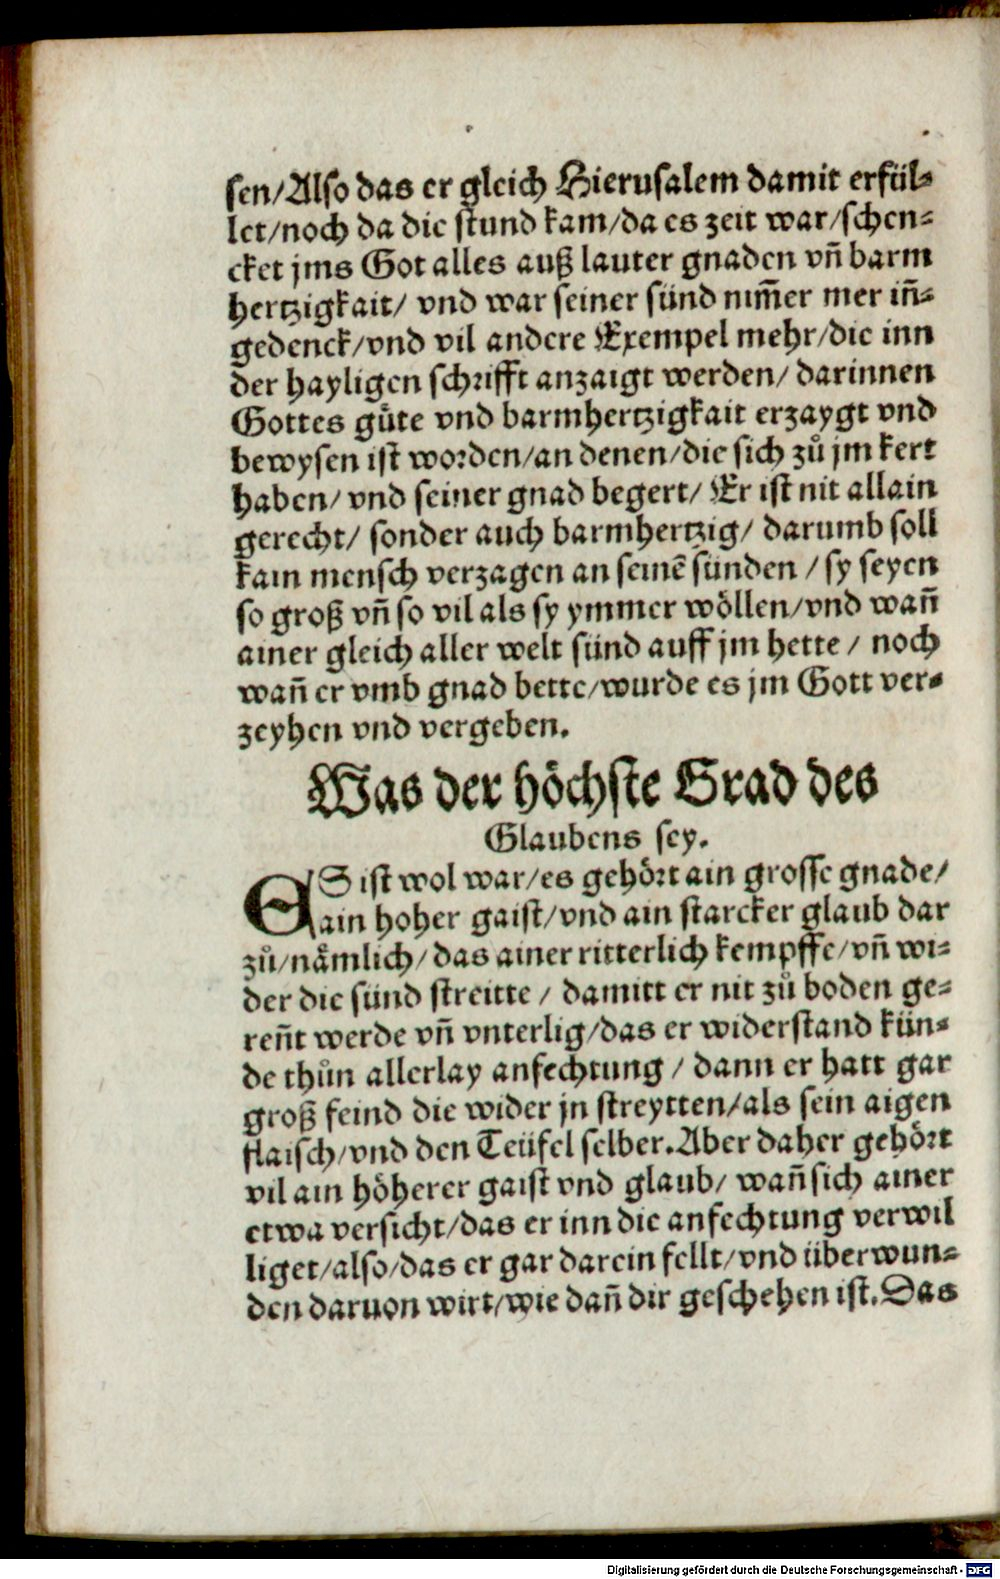 sen/Also das er gleich Hierusalem damit erfül-
let/noch da die stund kam/da es zeit war/schen-
cket jms Got alles auß lauter gnaden vn̄ barm
hertzigkait/ vnd war seiner sünd nim̄er mer in̄-
gedenck/vnd vil andere Exempel mehr/die inn
der hayligen schrifft anzaigt werden/ darinnen
Gottes gůte vnd barmhertzigkait erzaygt vnd
bewysen ist worden/an denen/die sich zů jm kert
haben/ vnd seiner gnad begert/ Er ist nit allain
gerecht/ sonder auch barmhertzig/ darumb soll
kain mensch verzagen an seinē sünden / sy seyen
so groß vn̄ so vil als sy ymmer wöllen/vnd wan̄
ainer gleich aller welt sünd auff jm hette / noch
wan̄ er vmb gnad bette/wurde es jm Gott ver-
zeyhen vnd vergeben.
Was der höchste Grad des
Glaubens sey.
ES ist wol war/es gehört ain grosse gnade/
ain hoher gaist/vnd ain starcker glaub dar
zů/nämlich/das ainer ritterlich kempffe/vn̄ wi-
der die sünd streitte / damitt er nit zů boden ge-
ren̄t werde vn̄ vnterlig/das er widerstand kün-
de thůn allerlay anfechtung / dann er hatt gar
groß feind die wider jn streytten/als sein aigen
flaisch/vnd den Teüfel selber.Aber daher gehört
vil ain höherer gaist vnd glaub/ wan̄ sich ainer
etwa versicht/das er inn die anfechtung verwil
liget/also/das er gar darein fellt/vnd überwun-
den daruon wirt/wie dan̄ dir geschehen ist.Das
Digitalisierung gefördert durch die Deutsche Forschungsgemeinschaft - DFG